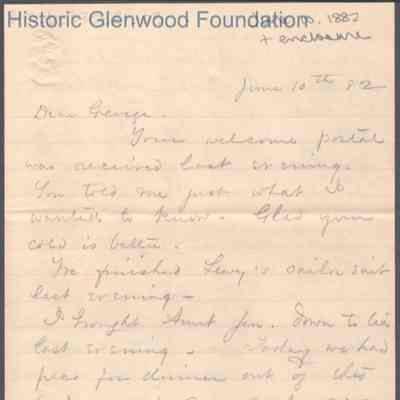 Historic Glenwood Foundation
June 10, 1882
+ enclosure
June 10th 82
Dear George.
Your welcome postal
was received last evening.
You told me just what I
wanted to know. Glad your
cold is better.
We finished sailor suit
last evening –
I brought Aunt Jen. down to tea
last evening. Today we had
peas for dinner out of the